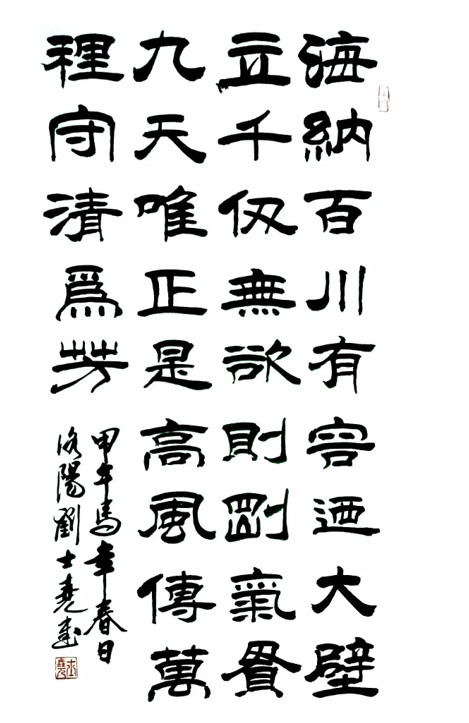 海納百川有容迺大壁
立千仞無欲則剛氣貫
九天唯正是高風傳萬
裡守清爲芳
甲午馬年春日
洛陽劉士堯書